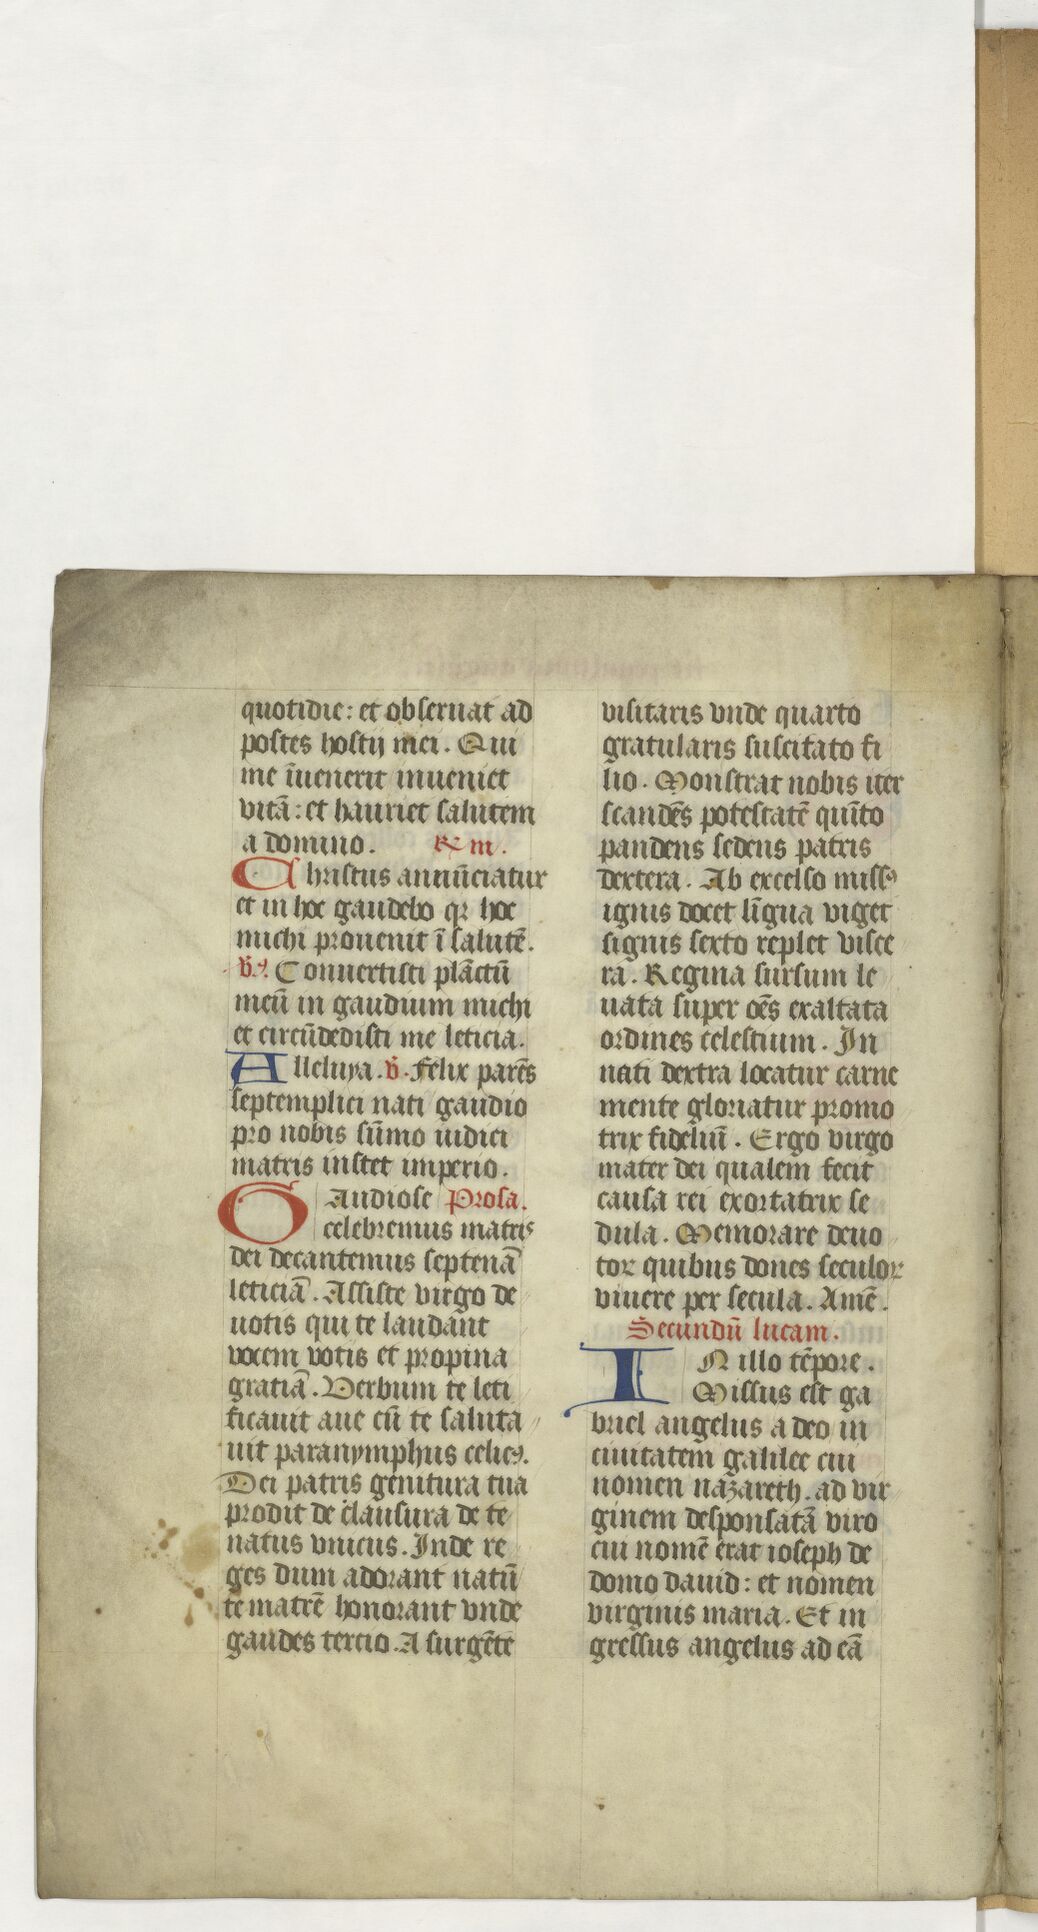 quotidie: et obseruat ad
postes hostij mei. Qui
me īuenerit inueniet
vitā: et hauriet salutem
a domino. R m.
Christus annūciatur
et in hoc gaudebo qꝛ hoc
michi prouenit ī salutē.
v̄. Conuertisti plāctū
meū in gaudium michi
et circūdedisti me leticia.
Alleluya. v̄. Felix parēs
septemplici nati gaudio
pro nobis sūmo iudici
matris instet imperio.
Gaudiose Prosa.
celebremus matris
dei decantemus septenā
leticiā. Assiste virgo de
uotis qui te laudant
vocem votis et propina
gratiā. Verbum te leti
ficauit aue cū te saluta
uit paranymphus celicꝰ.
Dei patris genitura tua
prodit de clausura de te
natus vnicus. Inde re
ges dum adorant natū
te matrē honorant vnde
gaudes tercio. A surgēte
visitaris vnde quarto
gratularis suscitato fi
lio. Monstrat nobis iter
scandēs potestatē quīto
pandens sedens patris
dextera. Ab excelso missꝰ
ignis docet līgua viget
signis sexto replet visce
ra. Regina sursum le
uata super oēs exaltata
ordines celestium. In
nati dextra locatur carne
mente gloriatur promo
trix fideliū. Ergo virgo
mater dei qualem fecit
causa rei exortatrix se
dula. Memorare deuo
tor quibus dones seculor
viuere per secula. Amē.
Secundū lucam.
IN illo tēpore.
Missus est ga
briel angelus a deo in
ciuitatem galilee cui
nomen nazareth. ad vir
ginem desponsatā viro
cui nomē erat ioseph de
domo dauid: et nomen
virginis maria. Et in
gressus angelus ad eā